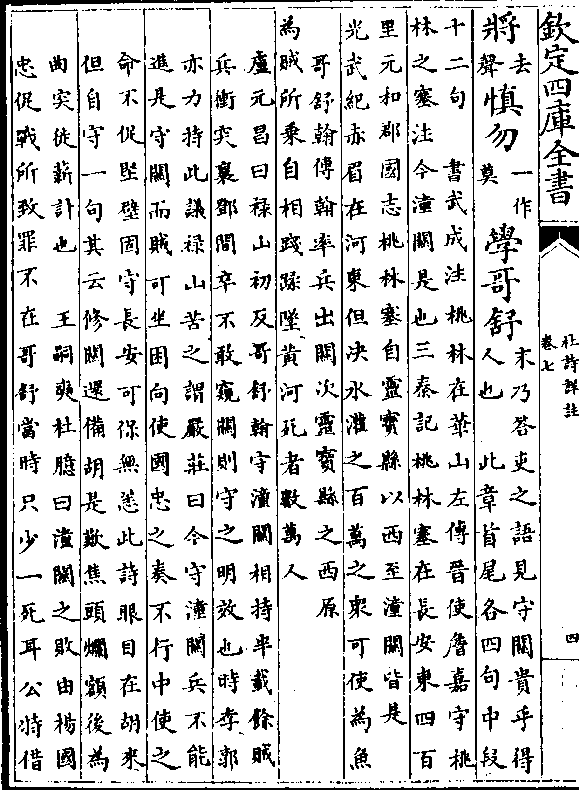 欽定四庫全書
杜詩詳註
卷七
四
將去聲慎勿一作莫學哥舒末乃答吏之語見守關貴乎得人也 此章首尾各四句中段
十二句 書武成注桃林在華山左傳晉使詹嘉守桃
林之塞注今潼關是也三秦記桃林塞在長安東四百
里元和郡國志桃林塞自靈寶縣以西至潼關皆是
光武紀赤眉在河東但決水灌之百萬之衆可使為魚
哥舒翰傳翰率兵出關次靈寶縣之西原
為賊所乗自相踐蹂墜黄河死者數萬人
盧元昌曰祿山初反哥舒翰守潼關相持半載餘賊
兵衝突襄鄧間卒不敢窺關則守之明效也時李郭
亦力持此議祿山苦之謂嚴莊曰今守潼關兵不能
進是守關而賊可坐困向使國忠之奏不行中使之
命不促堅壁固守長安可保無恙此詩眼目在胡來
但自守一句其云修關還備胡是歎焦頭爛額後為
曲突徙薪計也 王嗣奭杜臆曰潼關之敗由楊國
忠促戰所致罪不在哥舒當時只少一死耳公特借